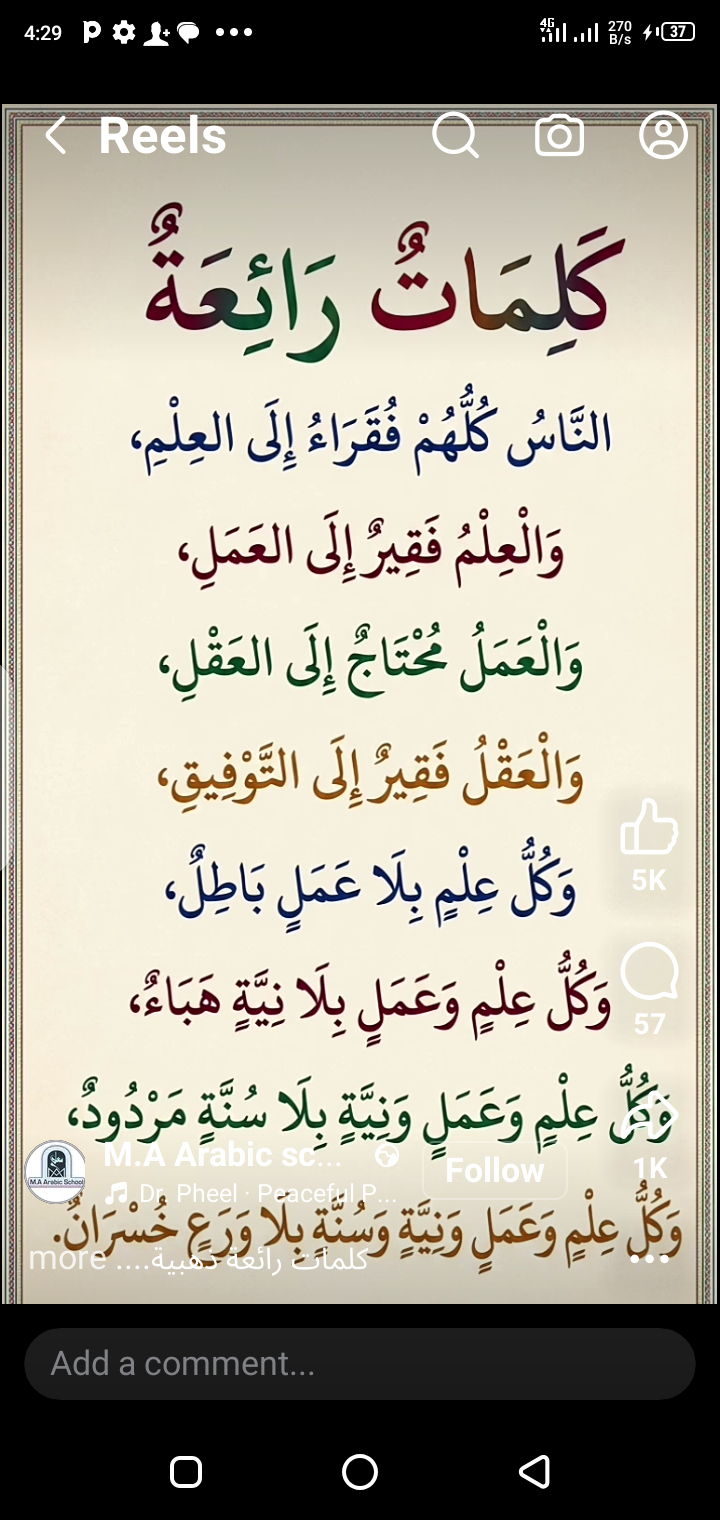 4:29
4G 270 B/s 37
Reels
كَلِمَاتٌ رَائِعَةٌ
النَّاسُ كُلُّهُمْ فُقَرَاءُ إِلَى العِلْمِ،
وَالْعِلْمُ فَقِيرٌ إِلَى العَمَلِ،
وَالْعَمَلُ مُحْتَاجٌ إِلَى العَقْلِ،
وَالْعَقْلُ فَقِيرٌ إِلَى التَّوْفِيقِ،
وَكُلُّ عِلْمٍ بِلَا عَمَلٍ بَاطِلٌ،
وَكُلُّ عِلْمٍ وَعَمَلٍ بِلَا نِيَّةٍ هَبَاءٌ،
وَكُلُّ عِلْمٍ وَعَمَلٍ وَنِيَّةٍ بِلَا سُنَّةٍ مَرْدُودٌ،
وَكُلُّ عِلْمٍ وَعَمَلٍ وَنِيَّةٍ وَسُنَّةٍ بِلَا وَرَعٍ خُسْرَانٌ.
5K
57
1K
M.A Arabic School
M.A Arabic sc...
Follow
Dr. Pheel · Peaceful P...
كلمات رائعة ذهبية.... more
Add a comment...